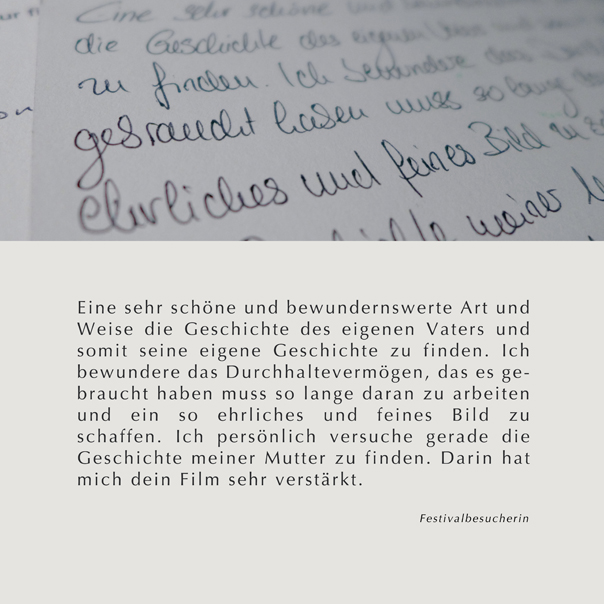 Eine sehr schöne und
die Geschichte des eigenen
zu finden. Ich bewundere das
gebraucht haben muss so lang
ehrliches und feines Bild zu
meiner
Eine sehr schöne und bewundernswerte Art und
Weise die Geschichte des eigenen Vaters und
somit seine eigene Geschichte zu finden. Ich
bewundere das Durchhaltevermögen, das es ge-
braucht haben muss so lange daran zu arbeiten
und ein so ehrliches und feines Bild zu
schaffen. Ich persönlich versuche gerade die
Geschichte meiner Mutter zu finden. Darin hat
mich dein Film sehr verstärkt.
Festivalbesucherin